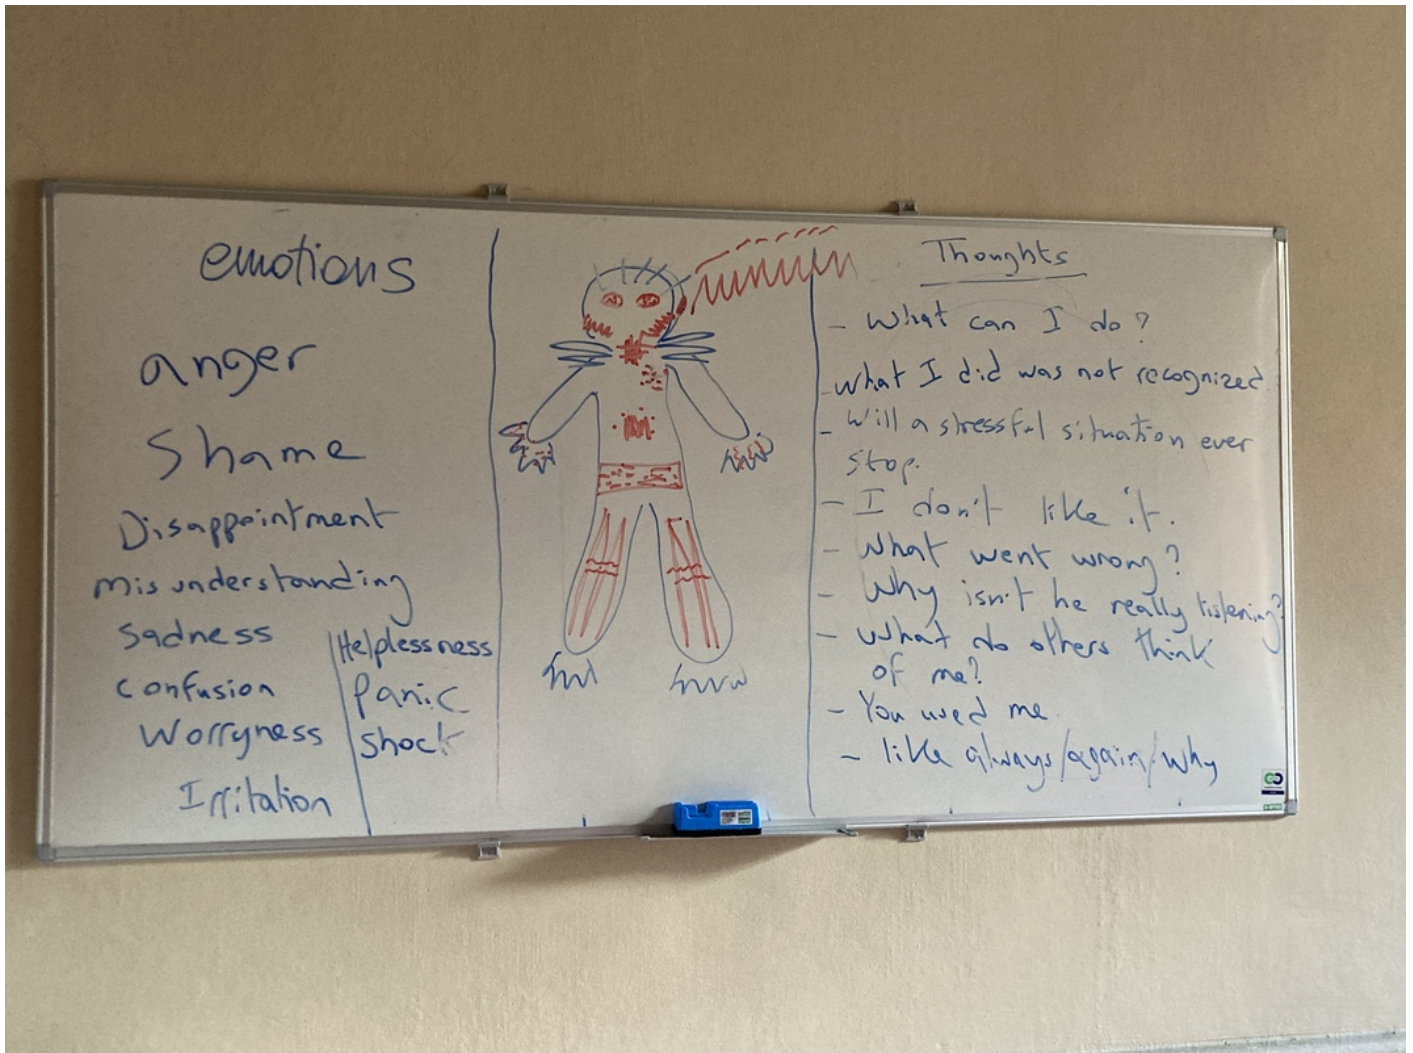 emotions
anger
Shame
Disappointment
Misunderstanding
Sadness
confusion
Worryness
Irritation
Helplessness
panic
shock
Thoughts
- What can I do?
- What I did was not recognized
- Will a stressful situation ever
stop.
- I don't like it.
- What went wrong?
- Why isn't he really listening?
- What do others think
of me?
- You used me
- like always/again/why